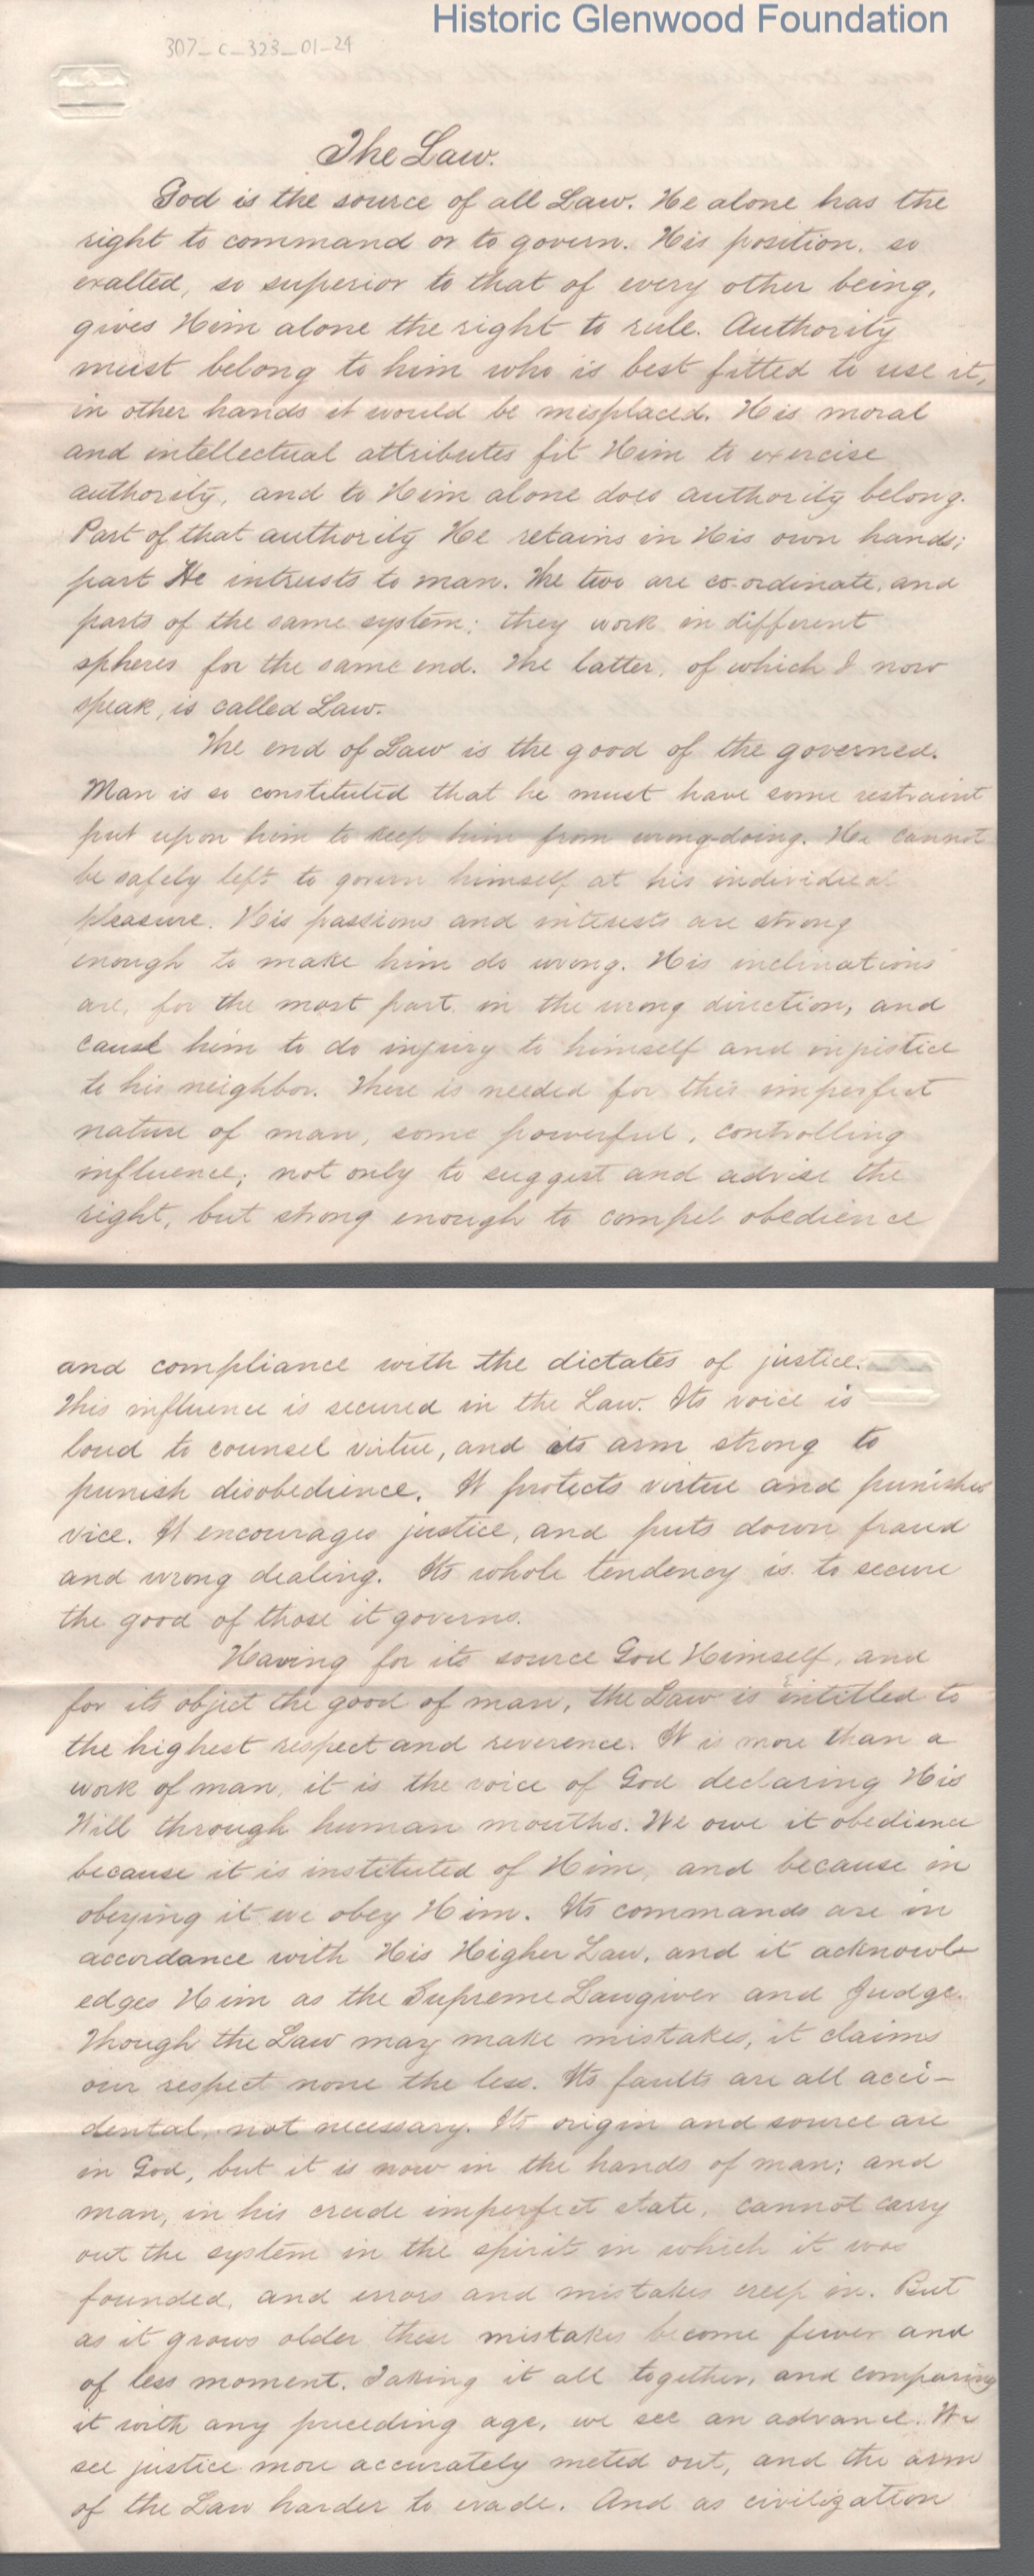 Historic Glenwood Foundation
307_C_323_01-24
The Law.
God is the source of all Law. He alone has the
right to command or to govern. His position, so
exalted, so superior to that of every other being,
gives Him alone the right to rule. Authority
must belong to him who is best fitted to use it,
in other hands it would be misplaced. His moral
and intellectual attributes fit Him to exercise
authority, and to Him alone does authority belong.
Part of that authority He retains in His own hands;
part He intrusts to man. The two are co-ordinate, and
parts of the same system; they work in different
spheres for the same end. The latter, of which I now
speak, is called Law.
The end of Law is the good of the governed.
Man is so constituted that he must have some restraint
put upon him to keep him from wrong-doing. He cannot
be safely left to govern himself at his individual
pleasure. His passions and interests are strong
enough to make him do wrong. His inclinations
are, for the most part, in the wrong direction, and
cause him to do injury to himself and injustice
to his neighbor. There is needed for this imperfect
nature of man, some powerful, controlling
influence; not only to suggest and advise the
right, but strong enough to compel obedience
and compliance with the dictates of justice.
This influence is secured in the Law. Its voice is
loud to counsel virtue, and its arm strong to
punish disobedience. It protects virtue and punishes
vice. It encourages justice, and puts down fraud
and wrong dealing. Its whole tendency is to secure
the good of those it governs.
Having for its source God Himself, and
for its object the good of man, the Law is intitled to
the highest respect and reverence. It is more than a
work of man, it is the voice of God declaring His
Will through human mouths. We owe it obedience
because it is instituted of Him, and because in
obeying it we obey Him. Its commands are in
accordance with His Higher Law, and it acknowl-
edges Him as the Supreme Lawgiver and Judge.
Though the Law may make mistakes, it claims
our respect none the less. Its faults are all acci-
dental, not necessary. Its origin and source are
in God, but it is now in the hands of man; and
man, in his crude imperfect state, cannot carry
out the system in the spirit in which it was
founded, and errors and mistakes creep in. But
as it grows older these mistakes become fewer and
of less moment. Taking it all together, and comparing
it with any preceding age, we see an advance. We
see justice more accurately meted out, and the arm
of the Law harder to evade. And as civilization